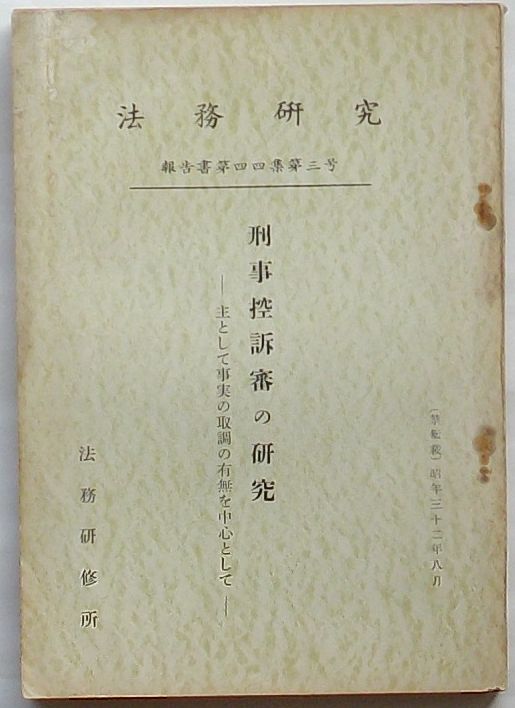 法務研究
報告書第四四集第三号
(禁転載)昭年三十二年八月
刑事控訴審の研究
―主として事実の取調の有無を中心として―
法務研修所